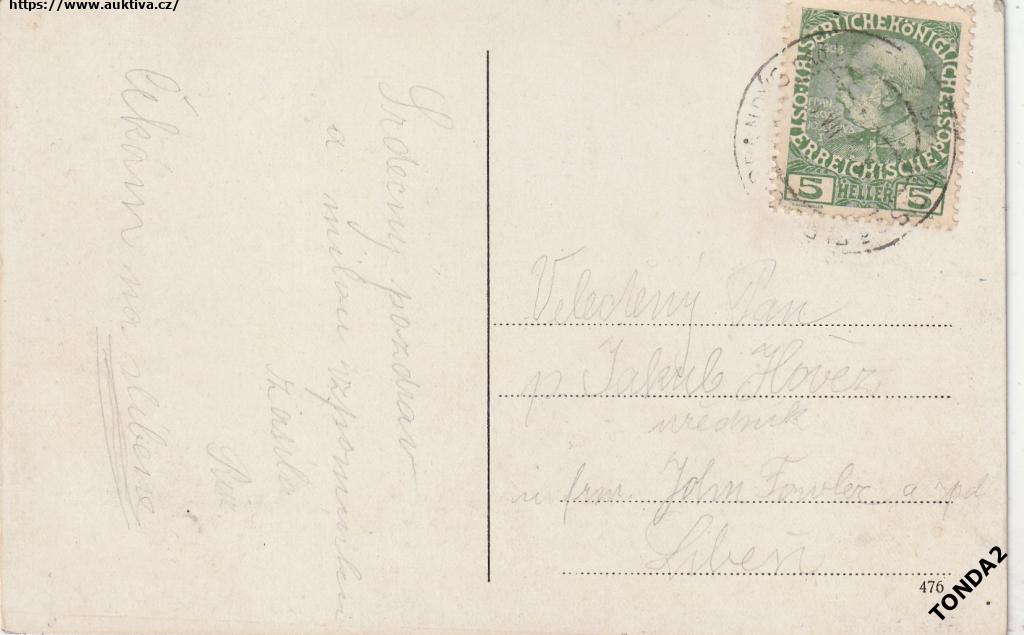 https://www.auktiva.cz/
Srdečný pozdrav
a milou vzpomínku
zasílá
Růž.
Čekám na slíbené
KAISERLICHE KÖNIGLICHE
ÖSTERREICHISCHE POST
1908
5 HELLER 5
Velectěný Pan
p Jakub
úředník
u firm. John Fowler a
Libeň
476
TONDA2